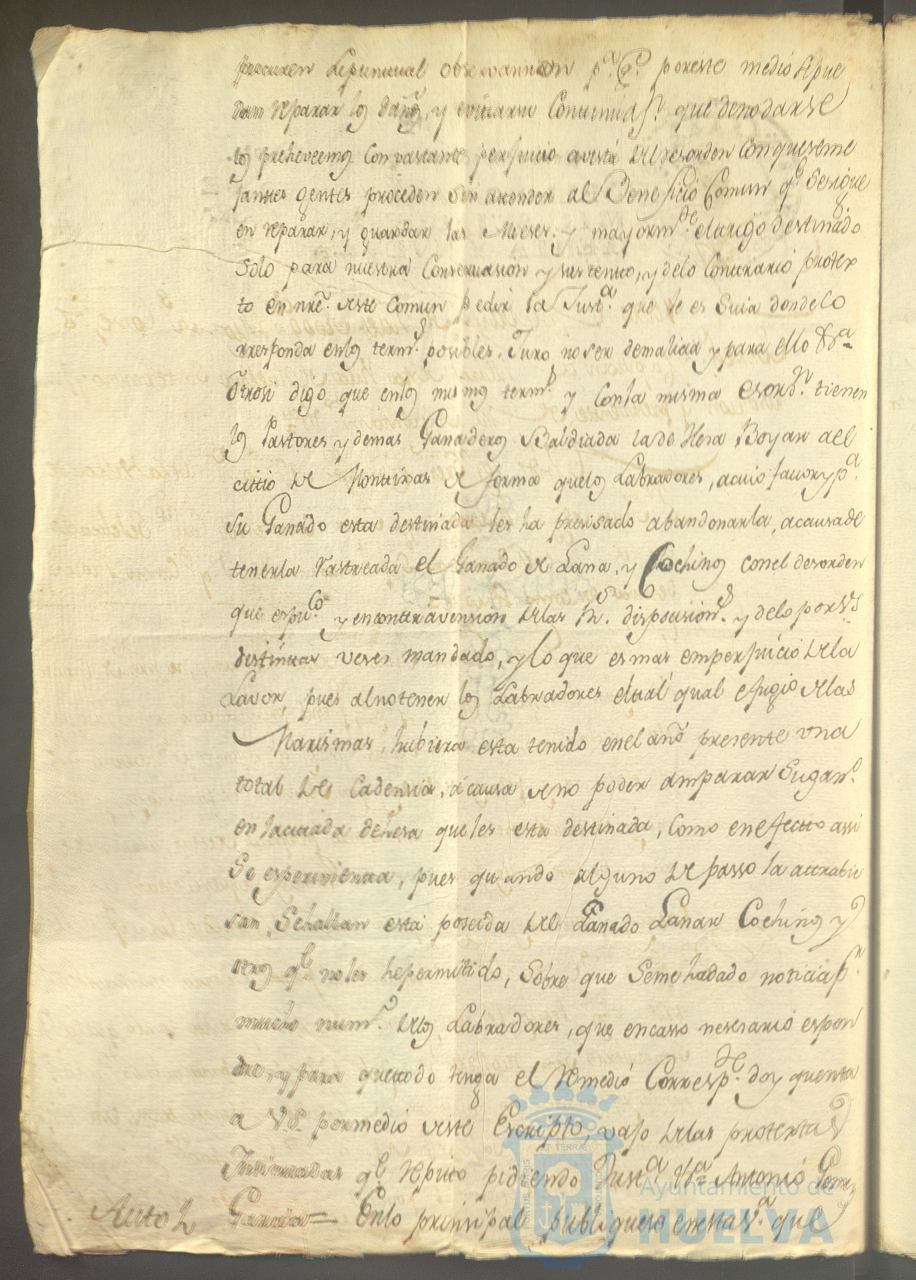 procuren le puntual observansion pa. qe. por este medio se pue
dan reparar los daños, y evitar su Continuidad. que de no darse
los preheveemos con vastante perjuicio avista del desorden con que seme
jantes gentes proceden sin atender al Beneficio Comun qe. se sigue
en reparar, y guardar las Mieses. y mayormte. el trigo destinado
Solo para nuestra Conservasion y sustento, y de lo Contrario protex
to en nre. de este Comun pedir la Justa. que le es Suia donde Co
rresponda en los termos. posibles. Juro no ser de malicia y para ello &a
Otrosi digo que en los mismos termos. y con la misma esorbn. tienen
los Pastores y demas Ganaderos Baldiada la de Hesa Boyar del
citio de Montixas de forma que los Labradores, a cuio favor y pa.
Su Ganado esta destinada les ha presisado abandonarla, a causa de
tenerla rastreada el Ganado de Lana, y Cochinos con el desorden
que es puco. y en contravension de las Rs. disposiciones. y de lo por VS.
distintas veses mandado, y lo que es mas em perjuicio de la
Lavor, pues al no tener los Labradores el tal qual efugio de las
Marismas, hubiera esta tenido en el año presente una
total de Cadensia, a causa de no poder amparar Su gando.
en la citada dehesa que les esta destinada, Como en efecto assi
Se esperimenta, pues quando alguno de passo la attrabie
san, Se hallan está poseida de Ganado Lanar Cochinos y
otros qe. no les he permitido, Sobre que Se me ha dado noticia pr.
mucho numo. de los Labradores, que en casso nesesario espon
dre, y para que todo tenga el remedio Correspte. doy quenta
a VS. por medio de este Escripto, vajo de las protextas
Insinuadas qe. repito pidiendo Justa. Va. Antonio Perez
Ganado = En lo prinsipal publiquese en esta Va. que
Auto